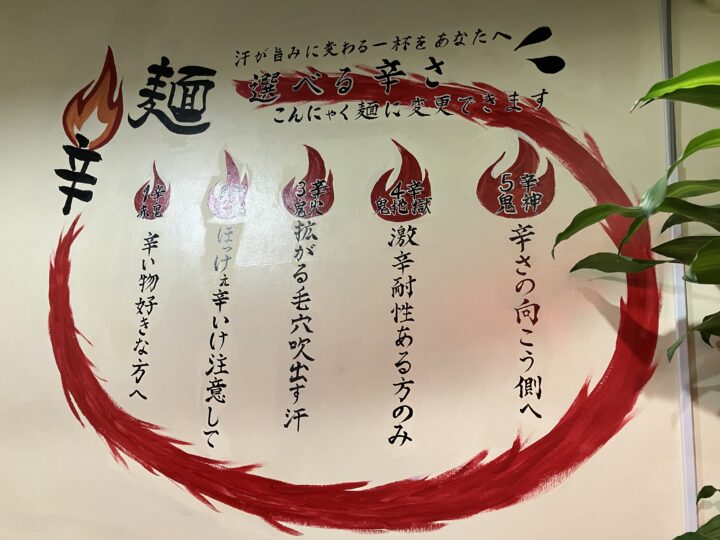 辛麺
汗が旨みに変わる一杯をあなたへ
選べる辛さ
こんにゃく麺に変更できます
5辛神
鬼
辛さの向こう側へ
4辛獄
鬼地
激辛耐性ある方のみ
3辛
鬼
拡がる毛穴吹出す汗
ほっけぇ辛いけ注意して
1辛
辛い物好きな方へ